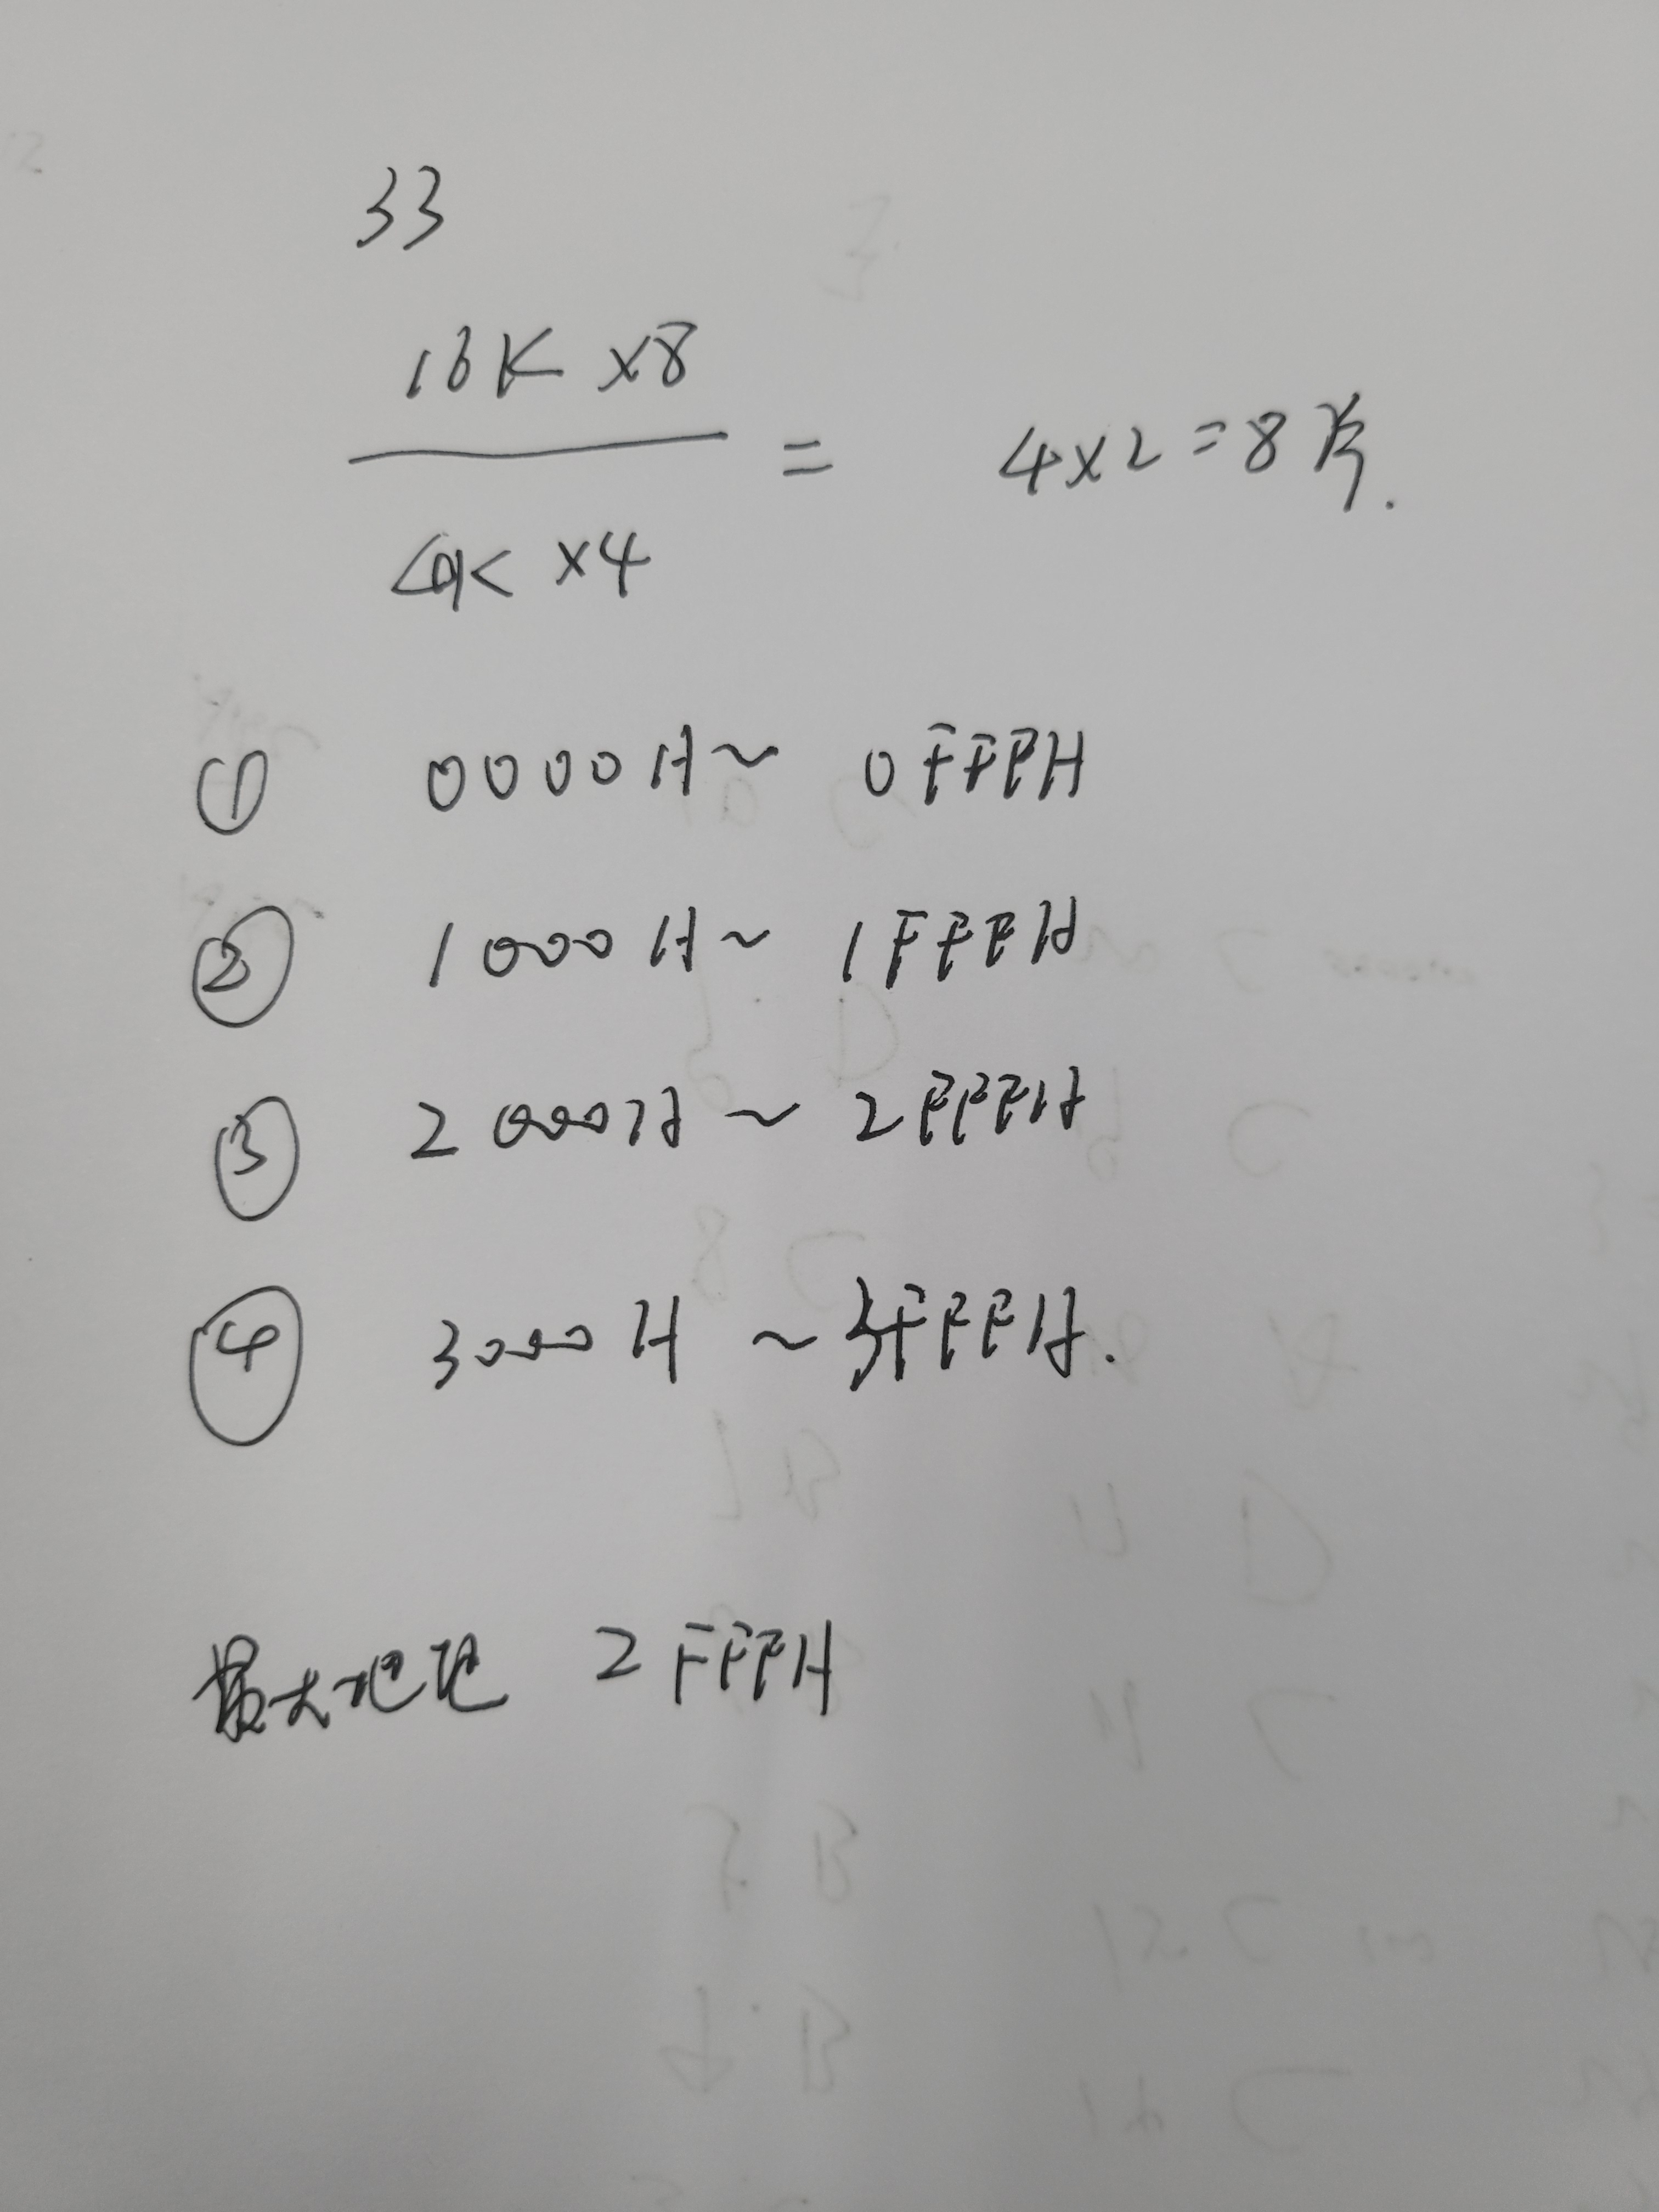 33
16K ×8
= 4×2=8片.
4K ×4
① 0000H~ 0FFFH
② 1000H~ 1FFFH
③ 2000H ~ 2FFFH
④ 3000H ~ 3FFFH.
最大地址 2FFFH